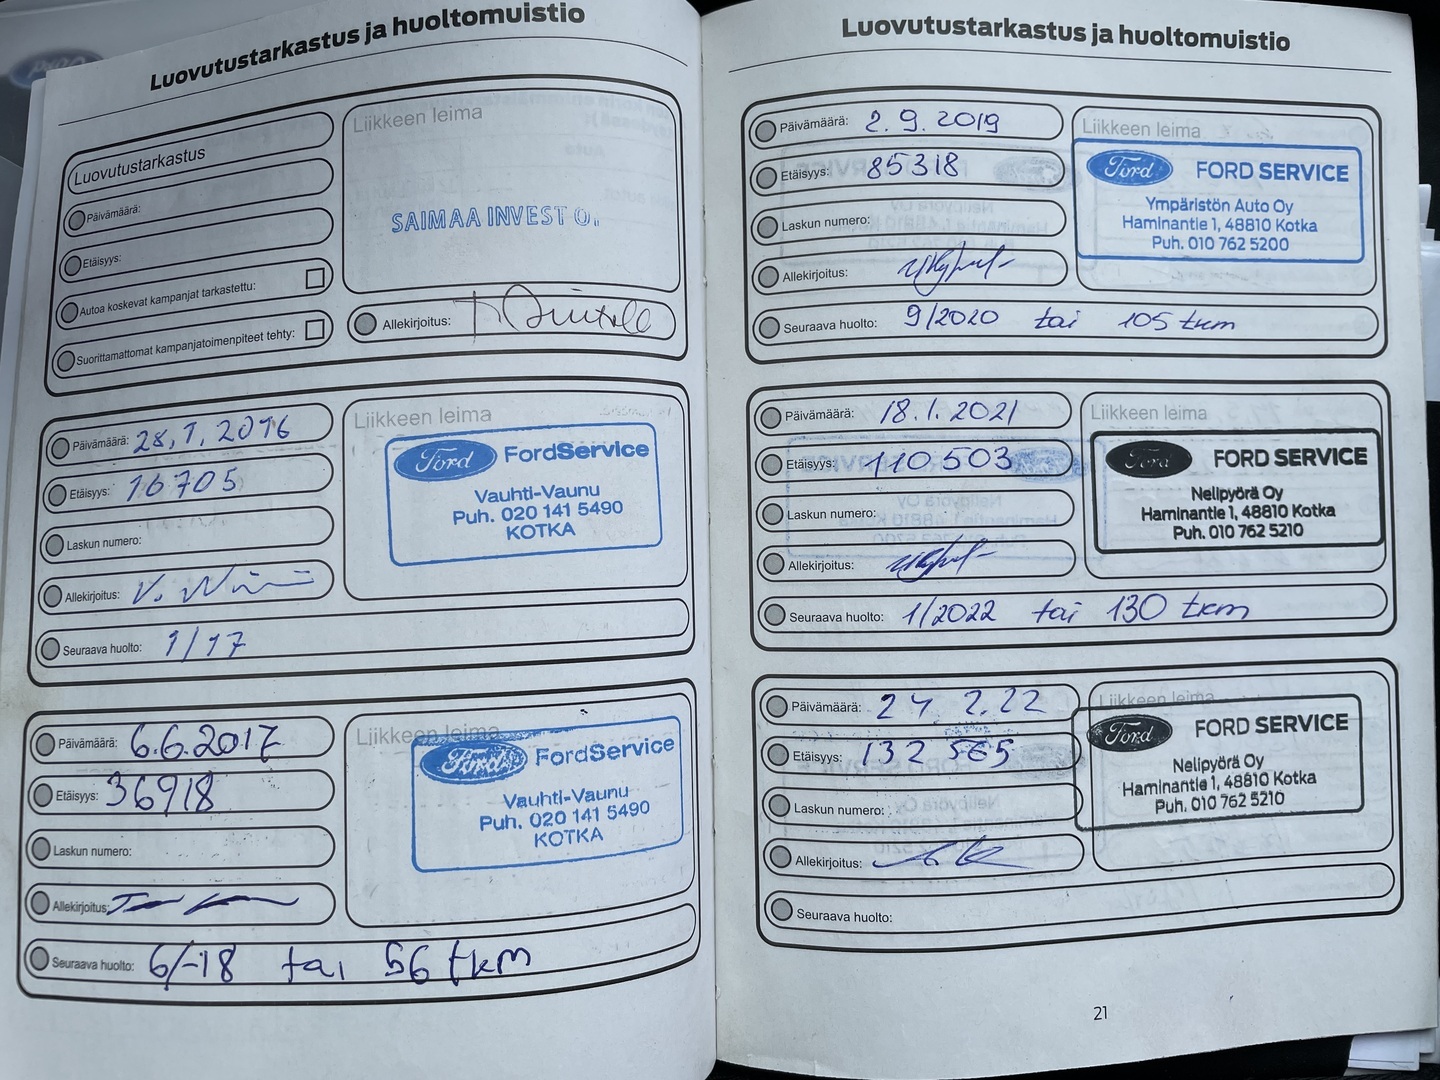 Luovutustarkastus ja huoltomuistio
Luovutustarkastus
Päivämäärä:
Etäisyys:
Autoa koskevat kampanjat tarkastettu:
Suorittamattomat kampanjatoimenpiteet tehty:
Liikkeen leima
SAIMAA INVEST O.
Allekirjoitus:
Päivämäärä: 28.1.2016
Etäisyys: 16705
Laskun numero:
Allekirjoitus:
Seuraava huolto: 1/17
Liikkeen leima
Ford FordService
Vauhti-Vaunu
Puh. 020 141 5490
KOTKA
Päivämäärä: 6.6.2017
Etäisyys: 36918
Laskun numero:
Allekirjoitus:
Seuraava huolto: 6/-18 tai 56 tkm
Liikkeen leima
Ford FordService
Vauhti-Vaunu
Puh. 020 141 5490
KOTKA
Luovutustarkastus ja huoltomuistio
Päivämäärä: 2.9.2019
Etäisyys: 85318
Laskun numero:
Allekirjoitus:
Seuraava huolto: 9/2020 tai 105 tkm
Liikkeen leima
Ford FORD SERVICE
Ympäristön Auto Oy
Haminantie 1, 48810 Kotka
Puh. 010 762 5200
Päivämäärä: 18.1.2021
Etäisyys: 110503
Laskun numero:
Allekirjoitus:
Seuraava huolto: 1/2022 tai 130 tkm
Liikkeen leima
Ford FORD SERVICE
Nelipyörä Oy
Haminantie 1, 48810 Kotka
Puh. 010 762 5210
Päivämäärä: 24.2.22
Etäisyys: 132 565
Laskun numero:
Allekirjoitus:
Seuraava huolto:
Liikkeen leima
Ford FORD SERVICE
Nelipyörä Oy
Haminantie 1, 48810 Kotka
Puh. 010 762 5210
21